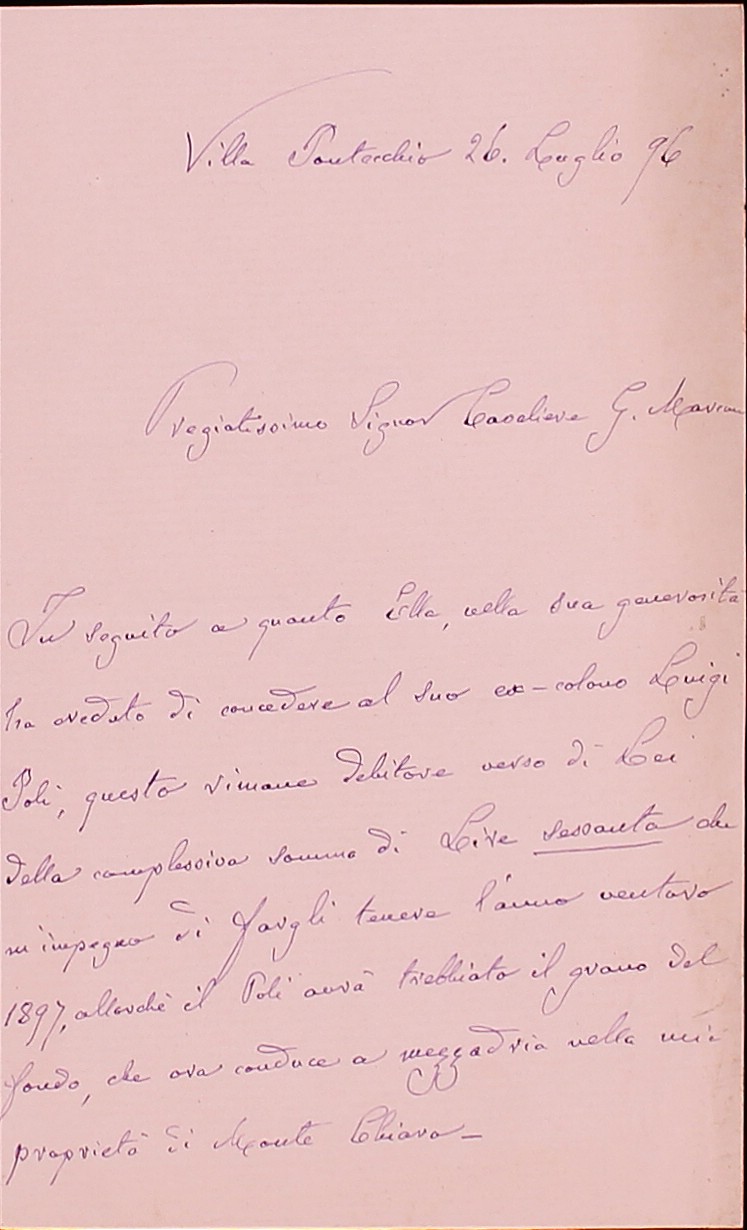 Villa Pontecchio 26. Luglio 96
Pregiatissimo Signor Cavaliere G. Marconi
In seguito a quanto Ella, nella sua generosità
ha creduto di concedere al suo ex-colono Luigi
Poli, questo rimane debitore verso di Lei
della complessiva somma di Lire sessanta che
m'impegno di fargli tenere l'anno venturo
1897, allorchè il Poli avrà trebbiato il grano del
fondo, che ora conduce a mezzadria nella mia
proprietà di Monte Chiaro –